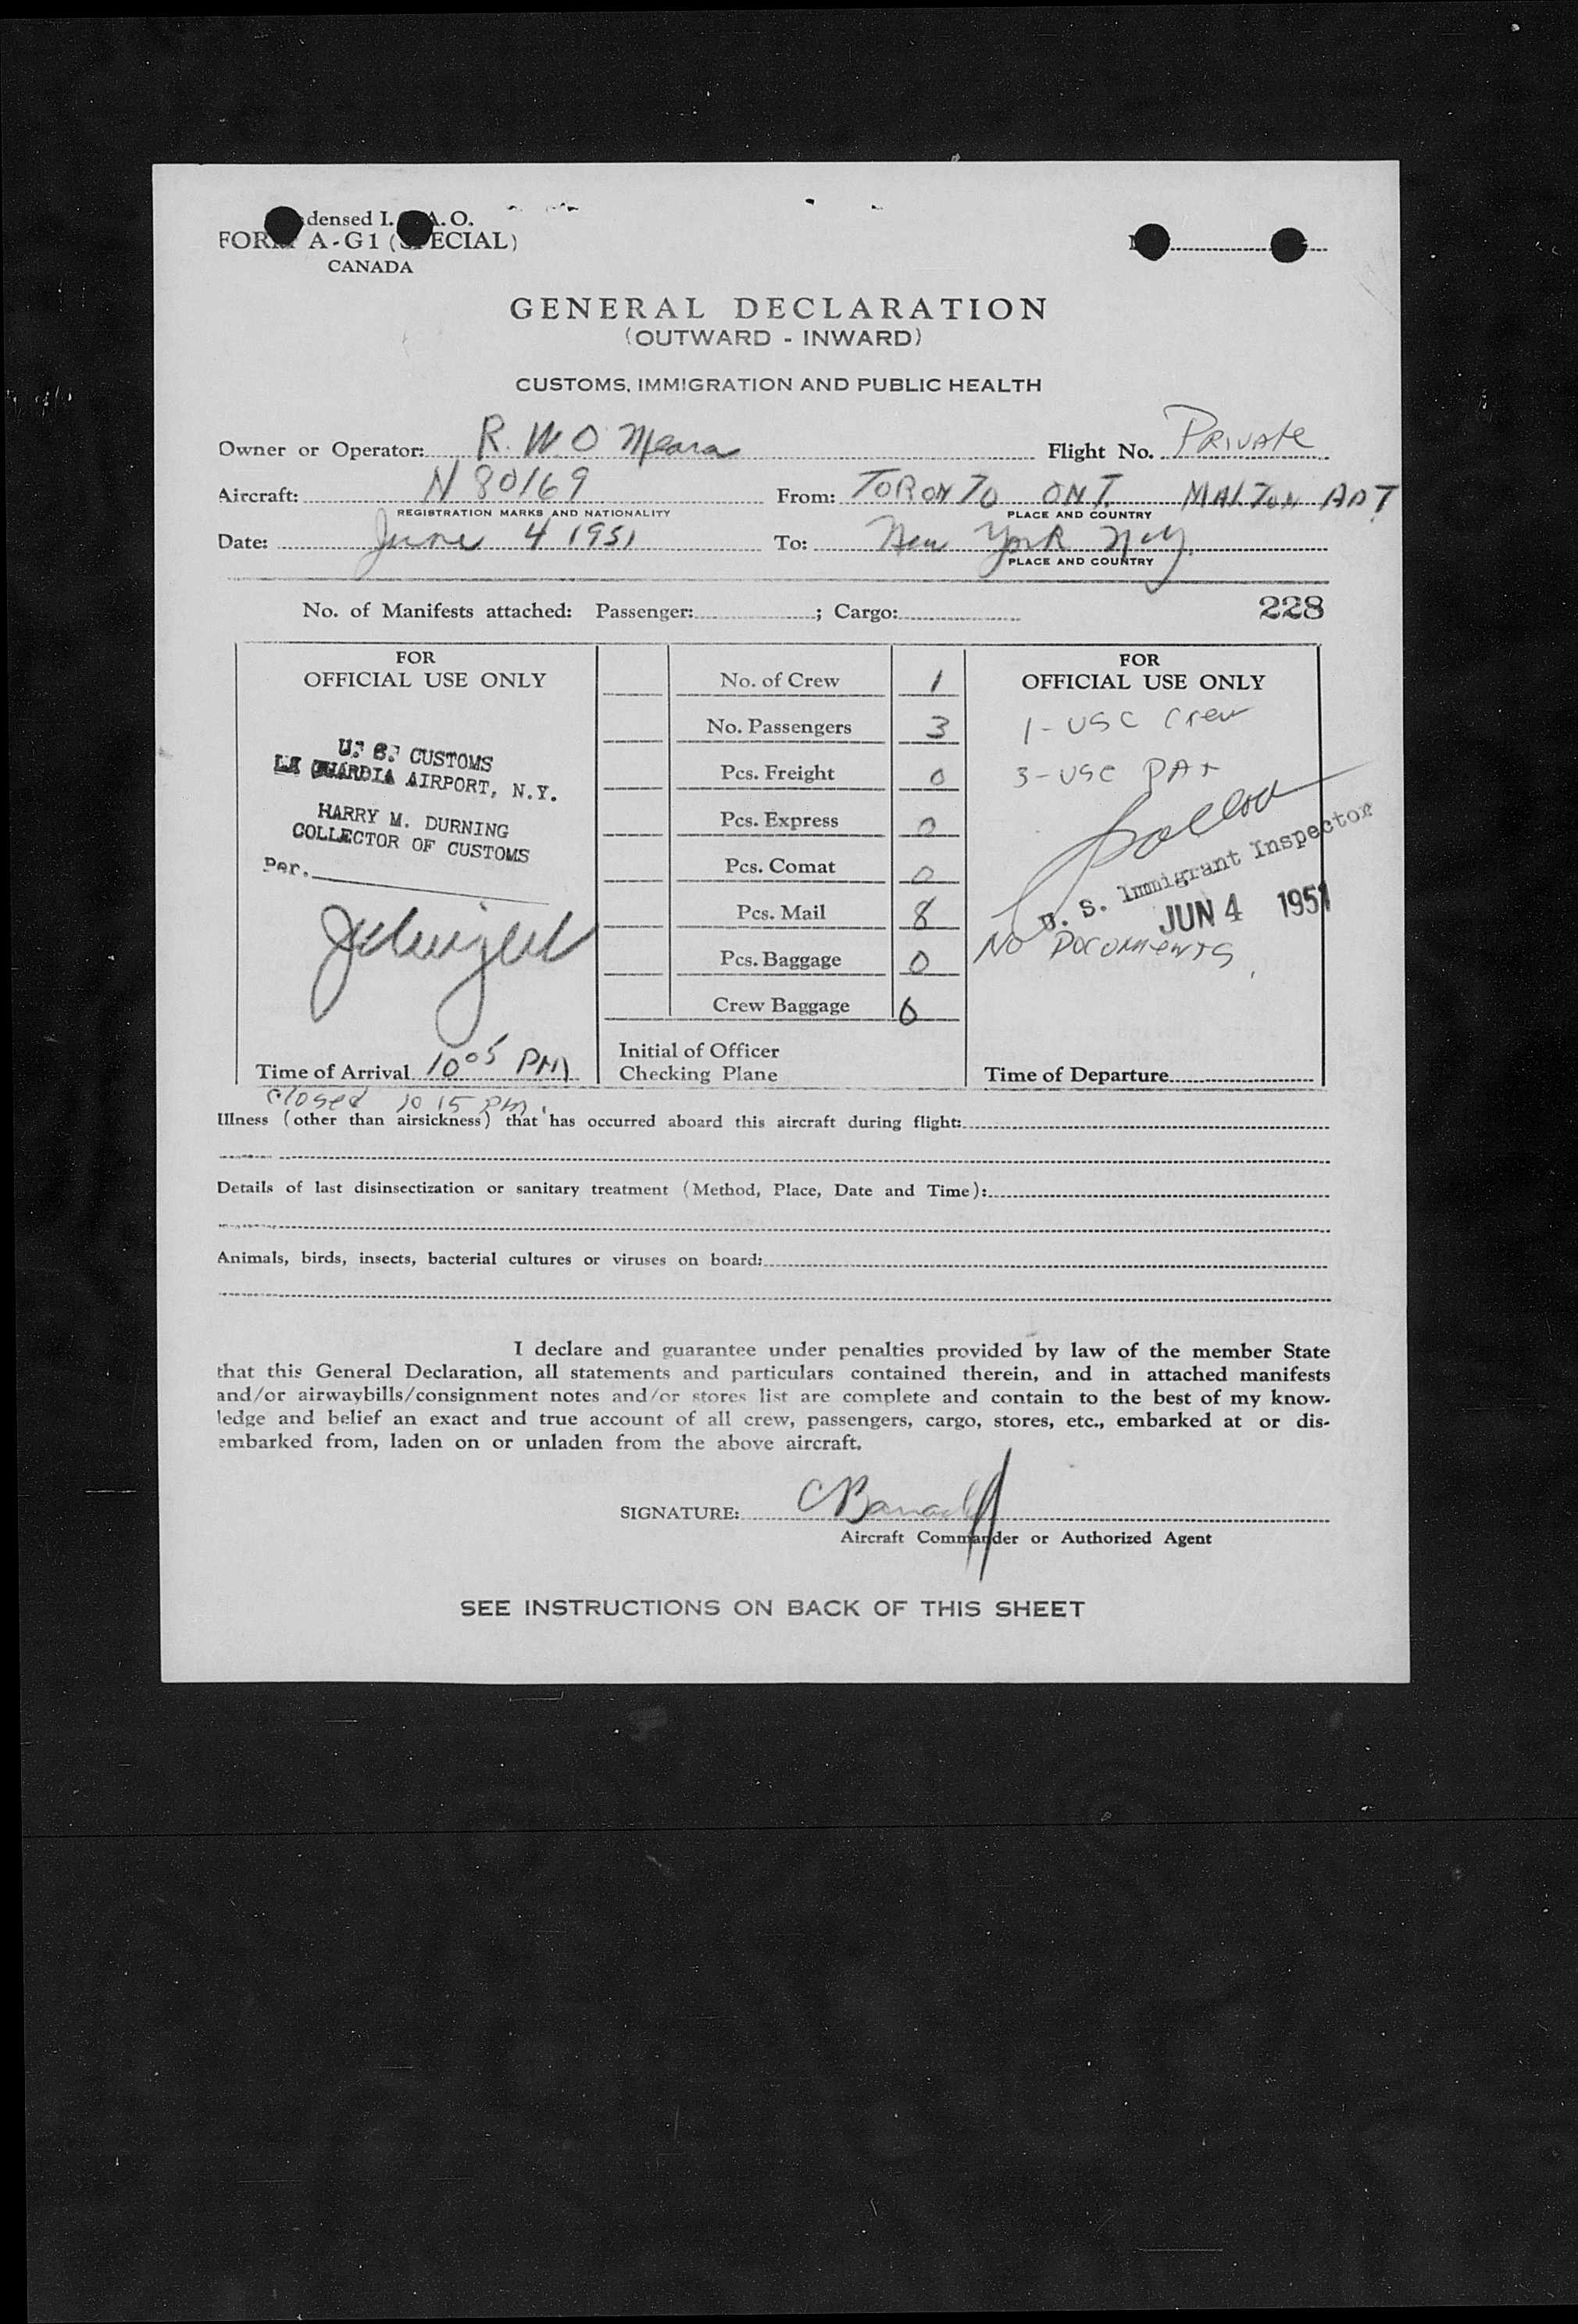 densed I. A.O.
FORM A-G1 (SPECIAL)
CANADA
GENERAL DECLARATION
(OUTWARD - INWARD)
CUSTOMS, IMMIGRATION AND PUBLIC HEALTH
Owner or Operator: R. W. O Meara Flight No. Private
Aircraft: N 80169 From: TORONTO ONT MALTON
REGISTRATION MARKS AND NATIONALITY PLACE AND COUNTRY
Date: June 4 1951 To: New York N.Y.
PLACE AND COUNTRY
No. of Manifests attached: Passenger: ; Cargo: 228
FOR
OFFICIAL USE ONLY
U. S. CUSTOMS
LA GUARDIA AIRPORT, N.Y.
HARRY M. DURNING
COLLECTOR OF CUSTOMS
Per.
Time of Arrival 10 05 PM
closed 10 15 PM.
No. of Crew 1
No. Passengers 3
Pcs. Freight 0
Pcs. Express 0
Pcs. Comat 0
Pcs. Mail 8
Pcs. Baggage 0
Crew Baggage 0
Initial of Officer
Checking Plane
FOR
OFFICIAL USE ONLY
1 - USC Crew
3 - USC PAX
U. S. Immigrant Inspector
JUN 4 1951
NO DOCUMENTS
Time of Departure
Illness (other than airsickness) that has occurred aboard this aircraft during flight:
Details of last disinsectization or sanitary treatment (Method, Place, Date and Time):
Animals, birds, insects, bacterial cultures or viruses on board:
I declare and guarantee under penalties provided by law of the member State
that this General Declaration, all statements and particulars contained therein, and in attached manifests
and/or airwaybills/consignment notes and/or stores list are complete and contain to the best of my know-
ledge and belief an exact and true account of all crew, passengers, cargo, stores, etc., embarked at or dis-
embarked from, laden on or unladen from the above aircraft.
SIGNATURE:
Aircraft Commander or Authorized Agent
SEE INSTRUCTIONS ON BACK OF THIS SHEET